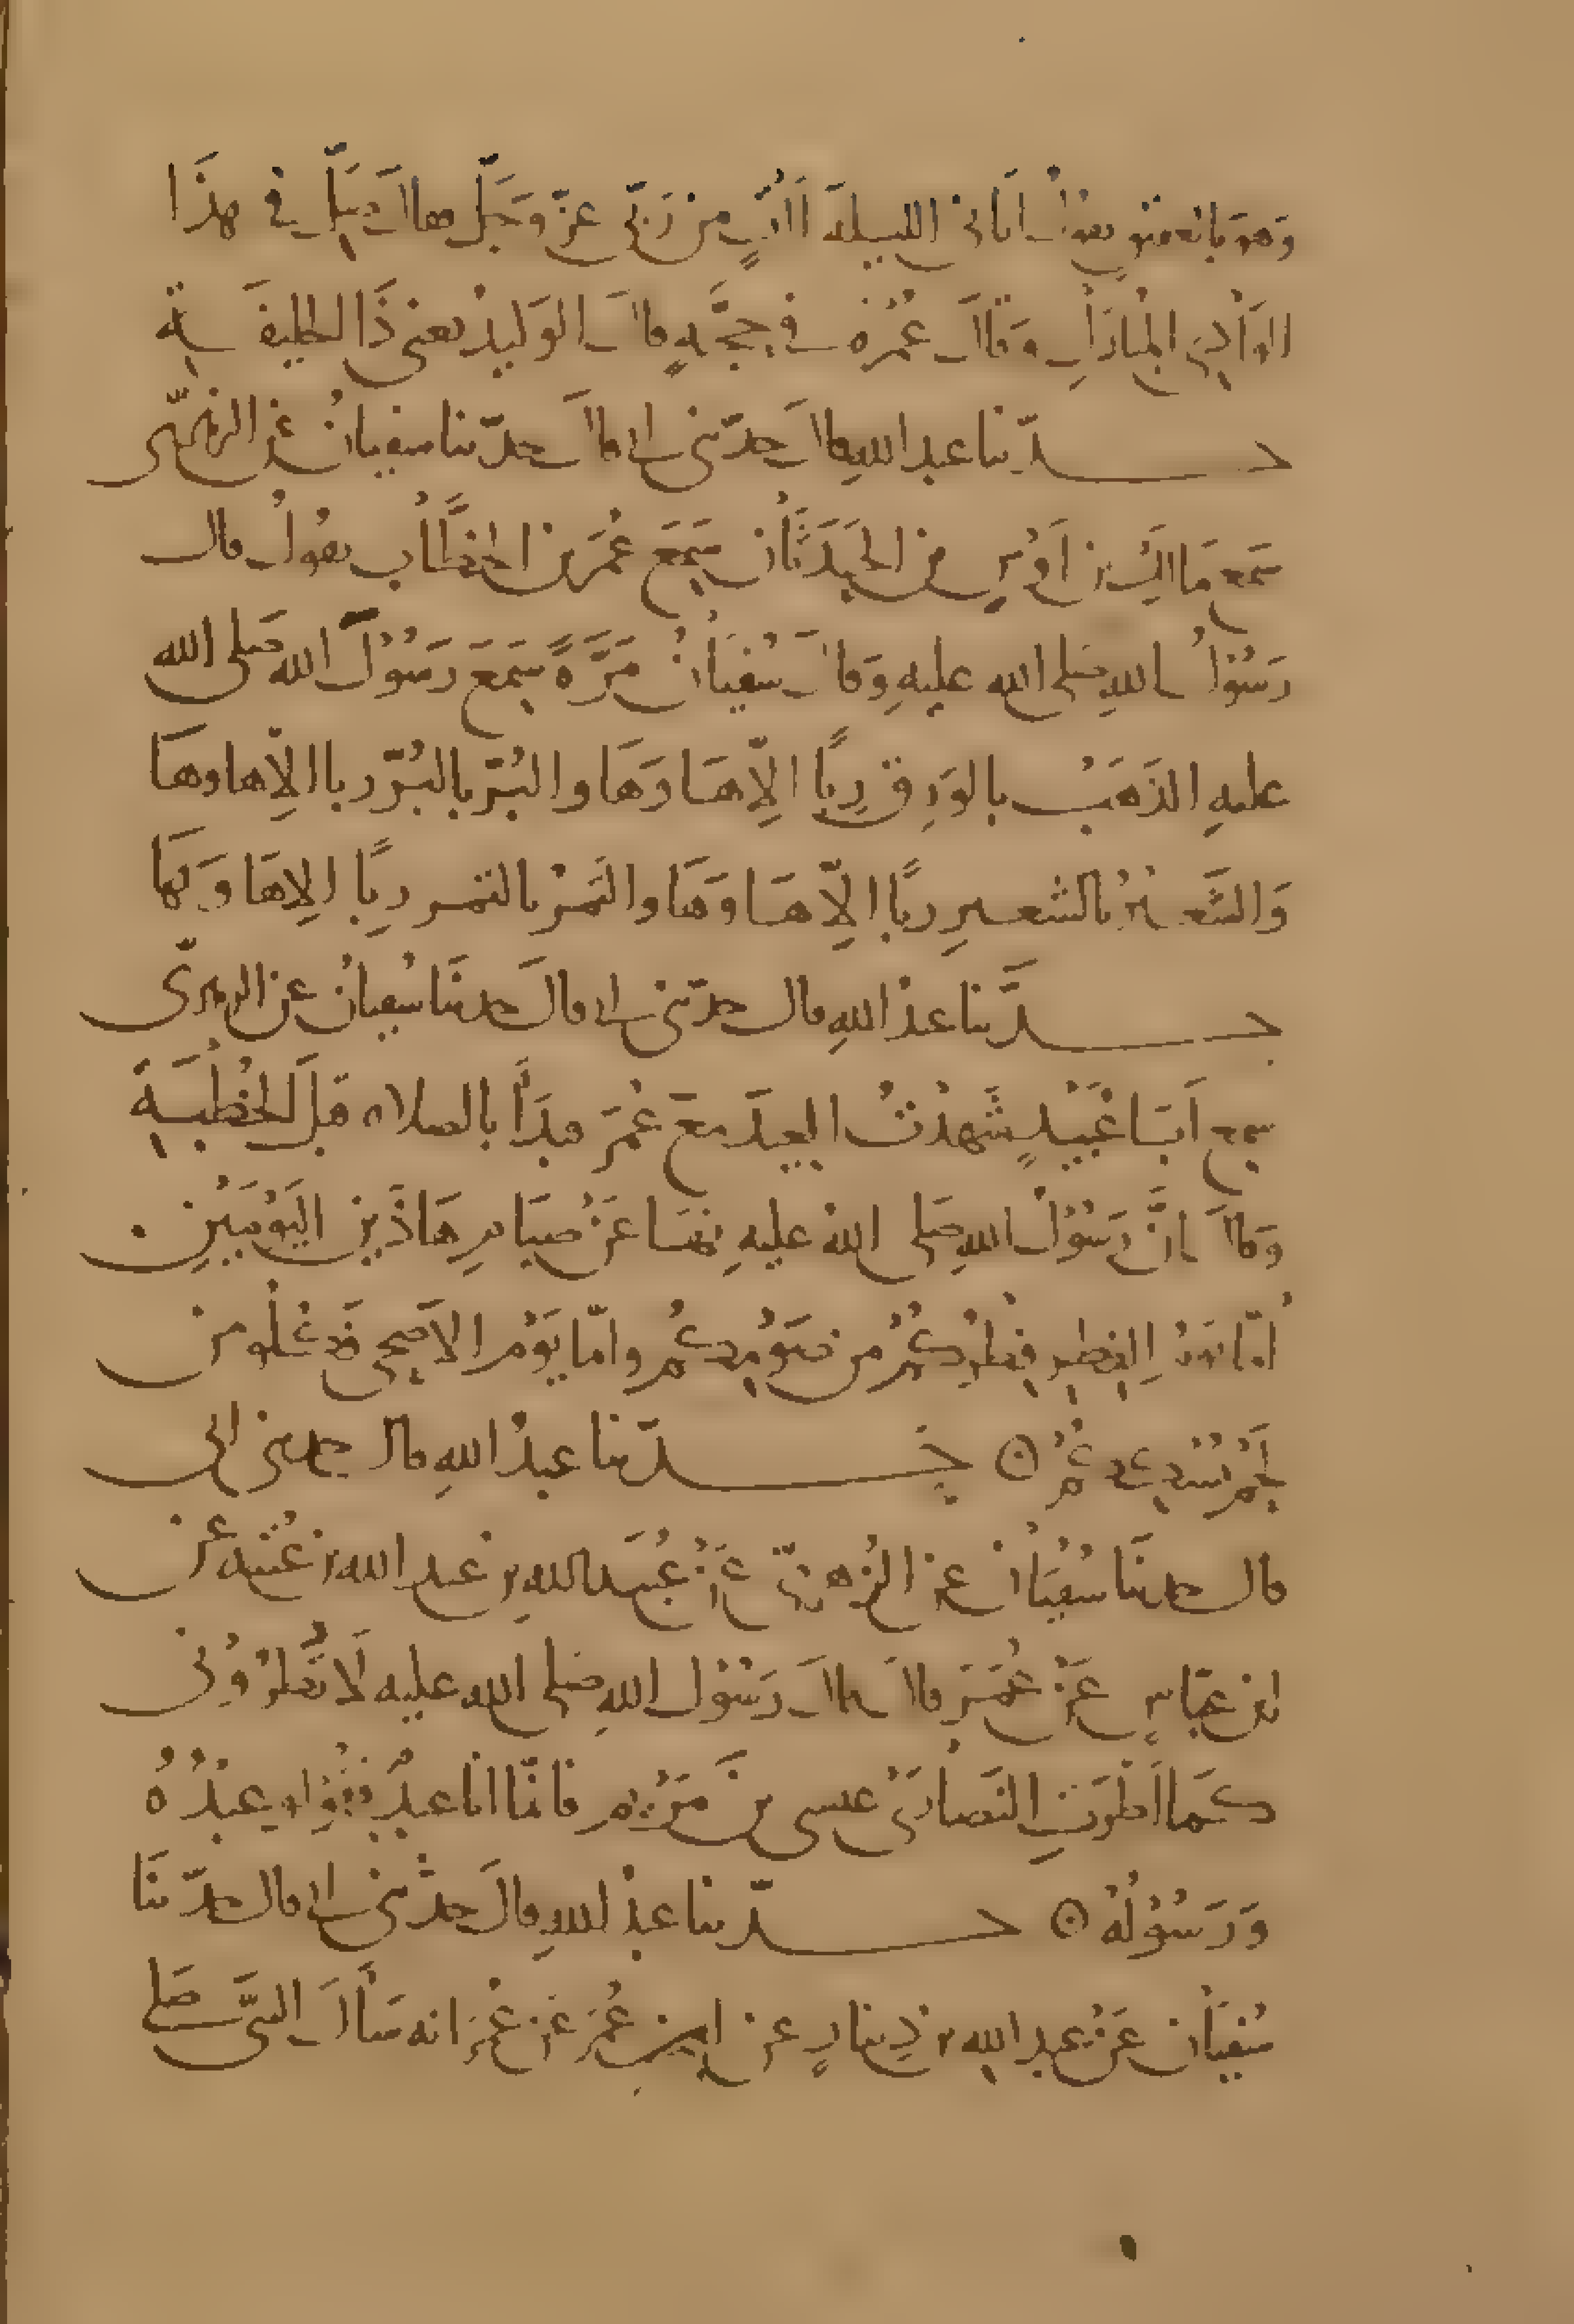 وَهوَ بالعقيق يقول اَتاني الليلة اٰتٍ من رَبّي عزّ وَجَلّ فقالَ صَلِّ في هذَا
الوَادِي المُبارَكِ وَقالَ عُمْرَة في حجَّةٍ قالَ الوَليدُ يعني ذَا الحليفَةِ
حدّثنا عبد اللهِ قالَ حدّثني ابي قالَ حدّثنا سفيانُ عن الزهريّ
سَمعَ مَالك بن اَوْسٍ بن الحَدَثَان سَمِعَ عُمَرَ بن الخطَّاب يقولُ قال
رَسُوْلُ اللهِ صَلى الله عليهِ وَقالَ سُفيَانُ مَرَّةً سَمِعَ رَسُوْلَ الله صَلى الله
عليهِ الذَهَبُ بالوَرِق رِبًا الاّ هَا وَهَا والبُرّ بالبُرّ ربا الاّ ها وهَا
وَالشَعيْرُ بالشعيرِ ربًا الاّ هَا وَهَا والتَمْرُ بالتمر رِبًا الا هَا وَهَا
حدَّثنا عبدُ اللهِ قال حدّثني ابي قالَ حدثنَا سُفيانُ عن الزهرىّ
سمع اَبَا عُبَيْدٍ شَهِدْتُ العِيدَ مَعَ عُمَرَ فبدَأَ بالصلاه قبلَ الخُطْبَةِ
وَقالَ انَّ رَسُوْلَ اللهِ صَلى اللهُ عليهِ نهَا عَنْ صيَامِ هَاذَين اليَوْمَيْنِ
اُمّا يَومُ الفِطرِ ففِطْرُكُمْ من صَوْمِكُم وامّا يَوْم الاَضحى فكلُو من
لحَمْ نُسُكِكُمْ ۞ حدّثنا عبدُ اللهِ قال حدثني ابي
قال حدثنَا سُفيَان عن الزُهريّ عَنْ عُبَيد اللهِ بن عبد الله بن عُتبه عن
ابن عبّاسٍ عَنْ عُمَرَ قالَ قالَ رَسُوْل اللهِ صَلى الله عليه لَا تُطْرُوْني
كَمَا اَطْرَتِ النَصارَى عيسى بن مَرْيم فانّما انا عبْدٌ فقُوْلوا عبْدُهُ
وَرَسُوْلُهُ ۞ حدّثنا عبدُ اللهِ قالَ حدثني ابي قال حدّثنَا
سُفيَان عَنْ عبد اللهِ بن دِينارٍ عن ابنِ عُمَرَ عَن عُمَرَ انه سَأَلَ النبيَّ صَلى